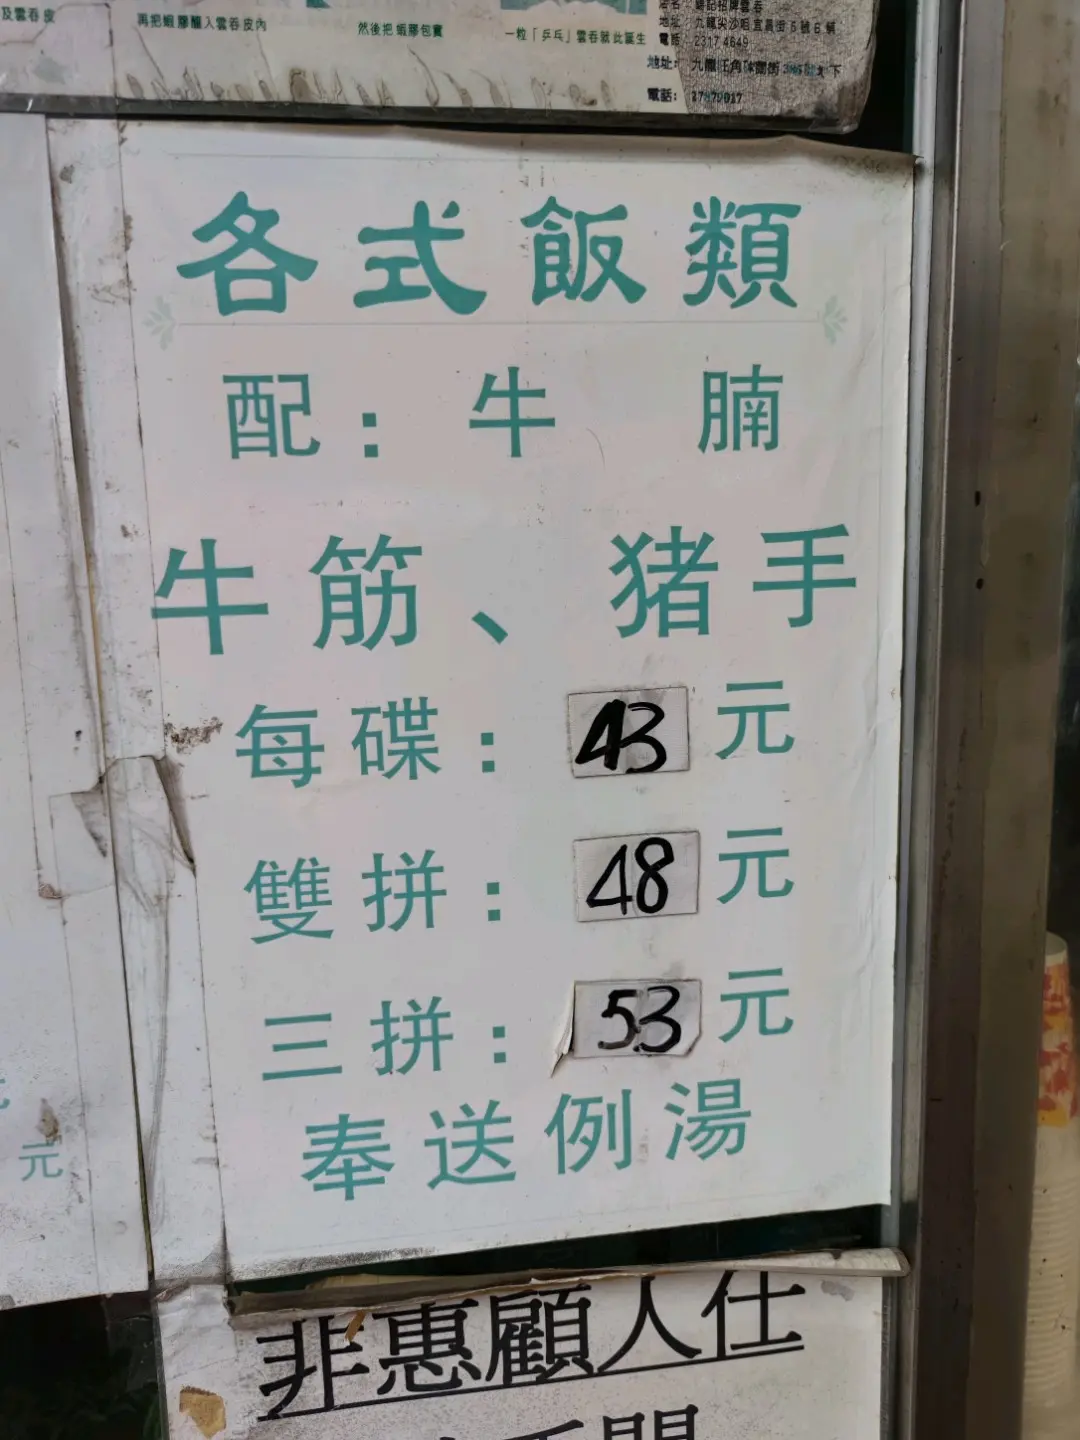 及雲吞皮
再把蝦膠釀入雲吞皮內
然後把蝦膠包實
一粒「乒乓」雲吞就此誕生
地址：九龍尖沙咀宜昌街6號6舖
電話：2317 4649
電話：27870017
各式飯類
配：牛腩
牛筋、猪手
每碟：43元
雙拼：48元
三拼：53元
奉送例湯
元
非惠顧人仕